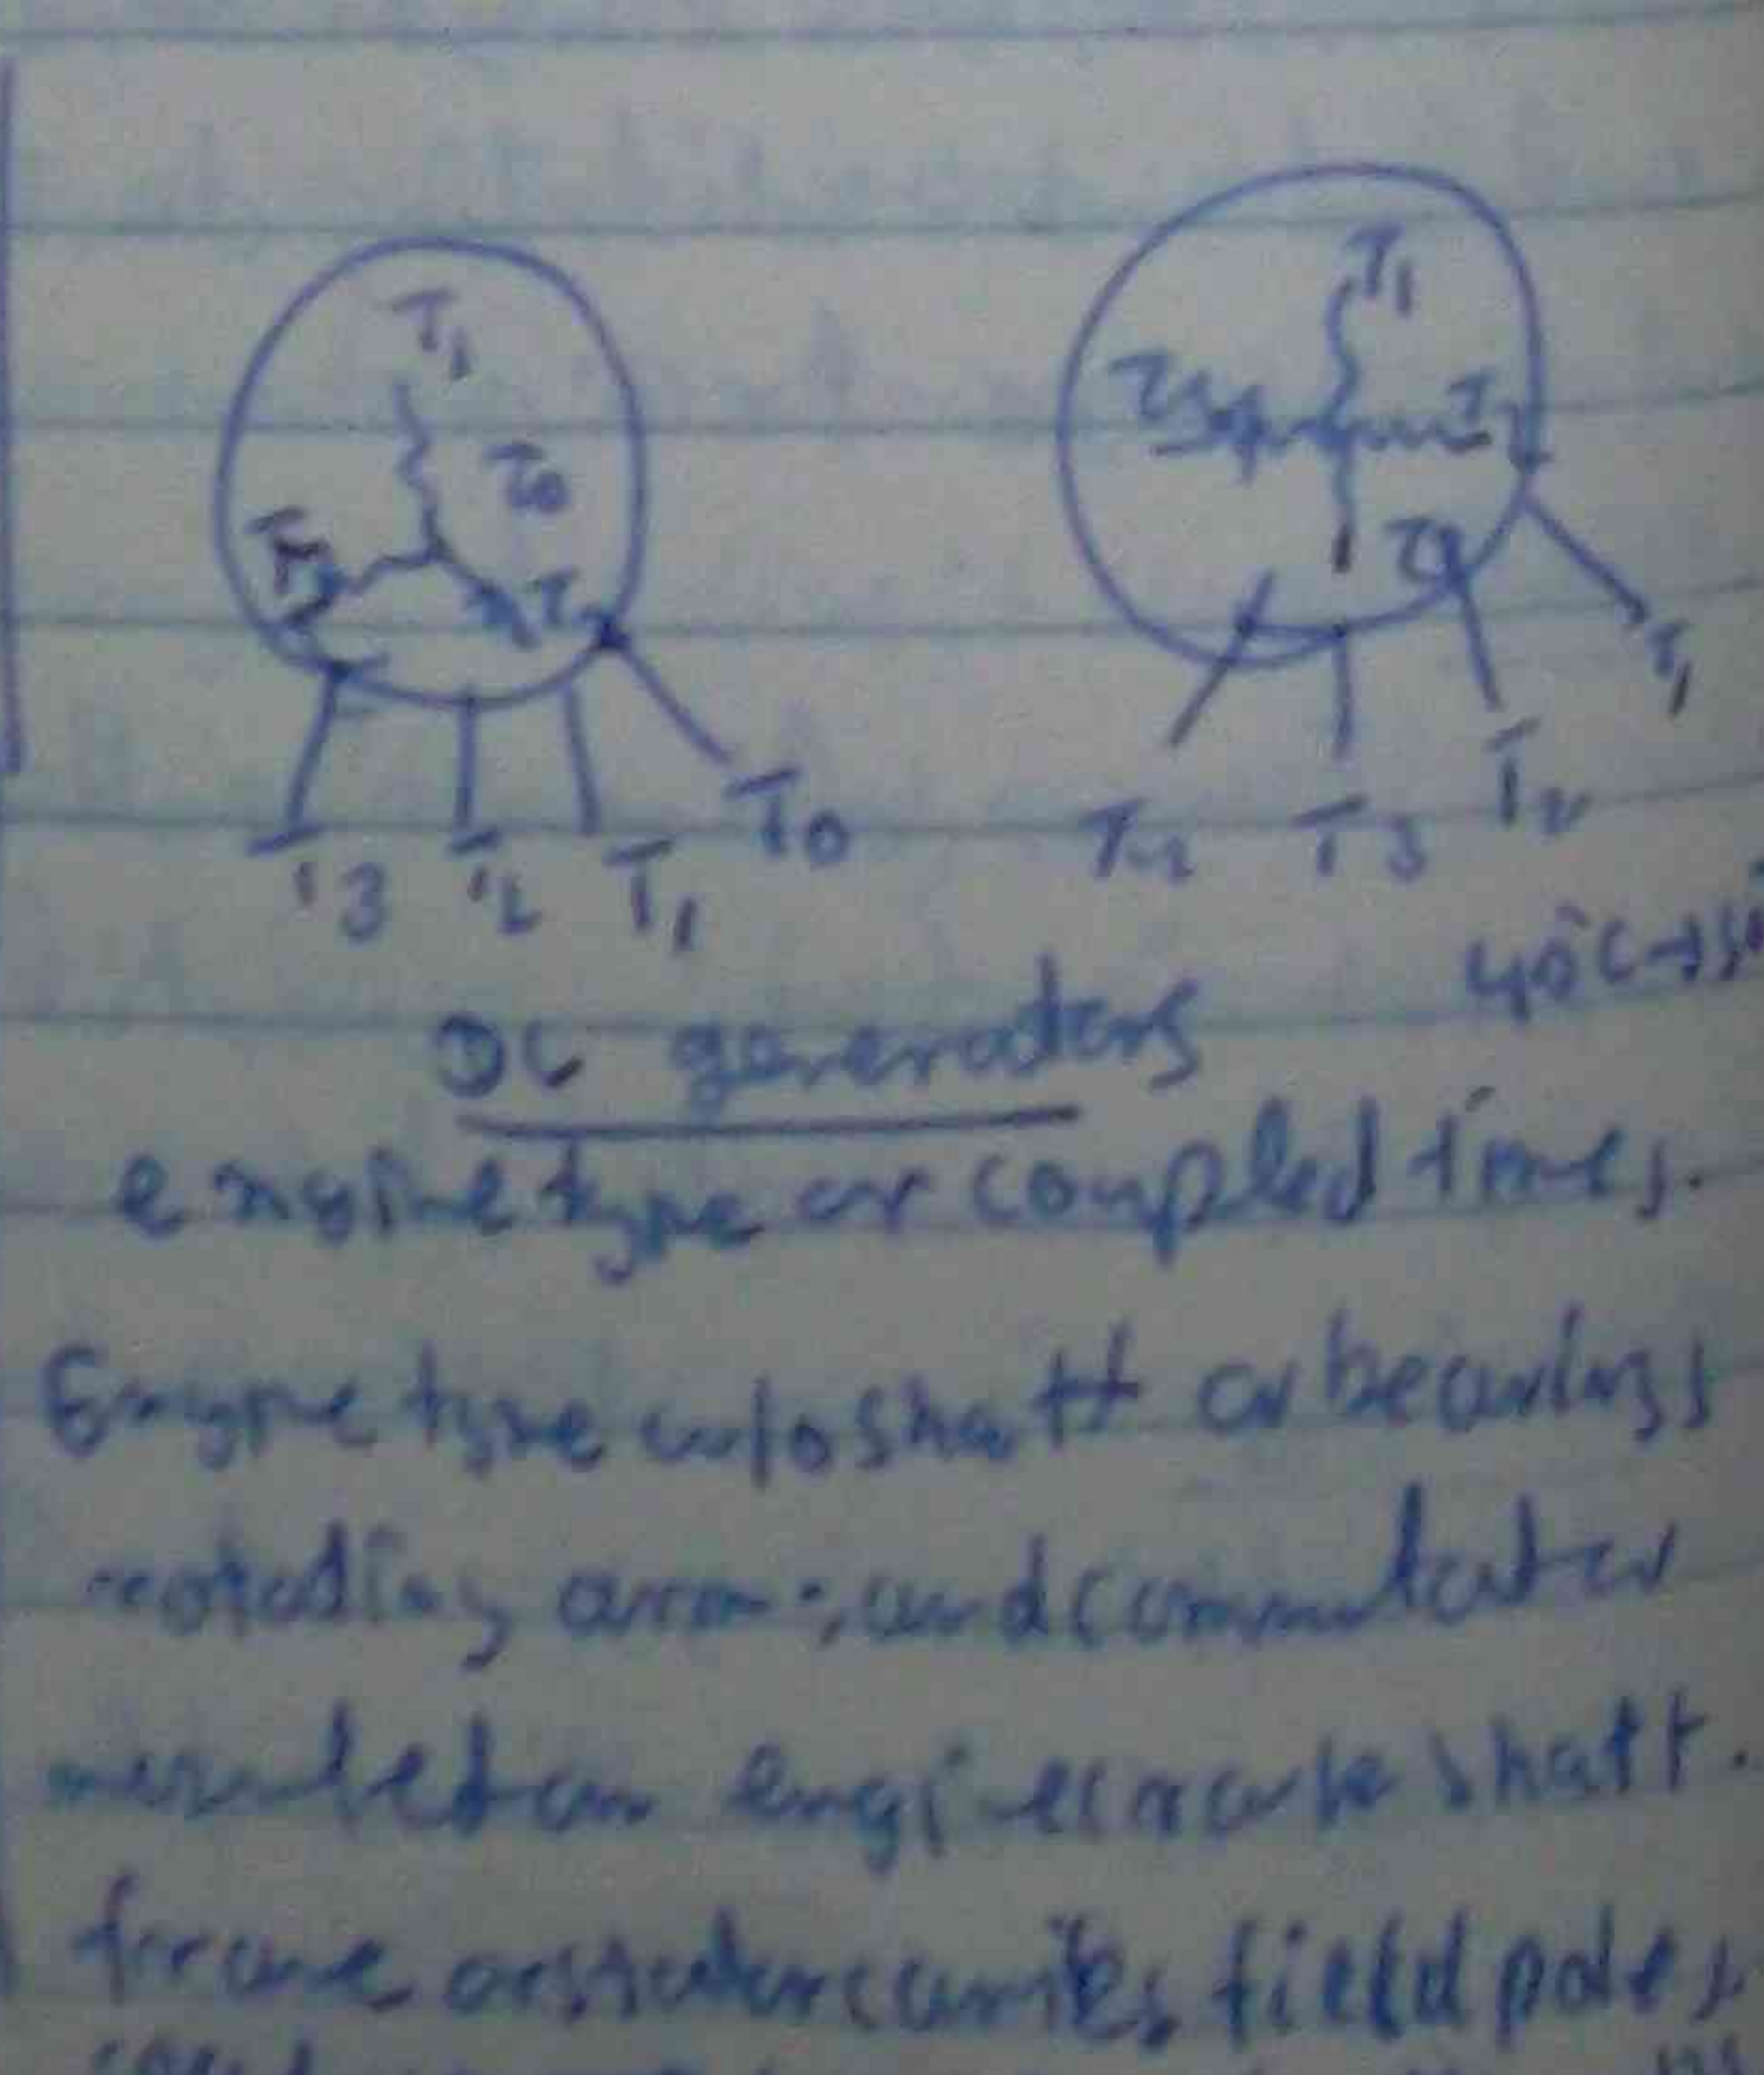 T1
T0
T1
T3
T2
T1
T0
T3
T2
T1
40°C
DC generators
engine type or coupled times.
Engine type w/o shaft or bearings
rotating arm; and commutator
on engine shaft.
frame or stator carries field poles